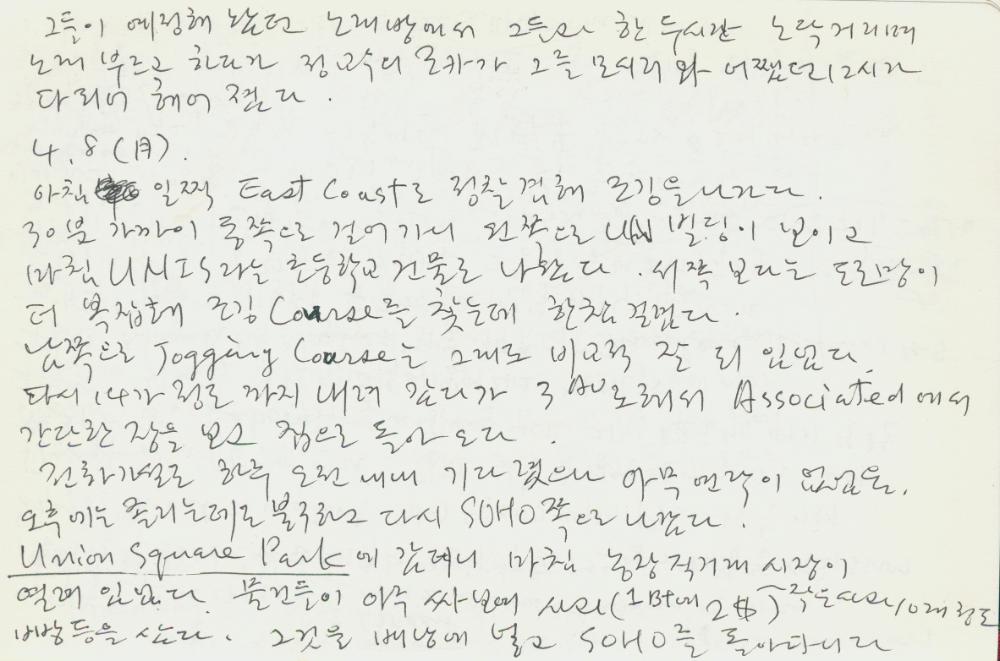 그들이 예정해 놨던 노래방에서 그들과 한 두시간 노닥거리며
노래 부르고 하다가 정교수의 로카가 그를 모시러 와 어쨌던 12시가
다 되어 헤어졌다.
4.8(月).
아침 일찍 East Coast로 정찰 겸해 조깅을 나가다.
30분 가까이 동쪽으로 걸어가니 왼쪽으로 UN 빌딩이 보이고
마침 UNIS라는 초등학교 건물로 나왔다. 서쪽 보다는 도로망이
더 복잡해 조깅 Course를 찾는데 한참 걸렸다.
남쪽으로 Jogging Course는 그대로 비교적 잘 되 있었다.
다시 14가 정도 까지 내려 갔다가 3 AV로해서 Associated에서
간단한 장을 보고 집으로 돌아 오다.
전화가설로 하루 오전 내내 기다렸으나 아무 연락이 없었음.
오후에는 졸리는데도 불구하고 다시 SOHO쪽으로 나갔다.
Union Square Park에 갔더니 마침 농장직거래 시장이
열려 있었다. 물건들이 아주 싸보여 사과(1 에 2$) 작은사과 10개정도
빵등을 샀다. 그것을 배낭에 넣고 SOHO를 돌아다니다